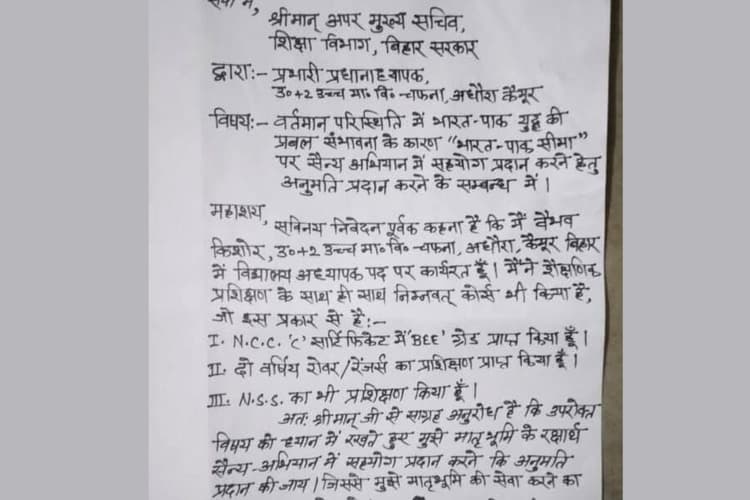 सेवा में,
श्रीमान् अपर मुख्य सचिव,
शिक्षा विभाग, बिहार सरकार
द्वारा:- प्रभारी प्रधानाध्यापक,
उ०+2 उच्च मा० वि० चफना, अधौरा कैमूर
विषय:- वर्तमान परिस्थिति में भारत-पाक युद्ध की
प्रबल संभावना के कारण "भारत-पाक सीमा"
पर सैन्य अभियान में सहयोग प्रदान करने हेतु
अनुमति प्रदान करने के सम्बन्ध में।
महाशय,
सविनय निवेदन पूर्वक कहना है कि मैं वैभव
किशोर, उ०+2 उच्च मा० वि० चफना, अधौरा, कैमूर बिहार
में विद्यालय अध्यापक पद पर कार्यरत हूँ। मैंने शैक्षणिक
प्रशिक्षण के साथ ही साथ निम्नवत् कोर्स भी किया है,
जो इस प्रकार से है:-
I. N.C.C. 'C' सर्टिफिकेट में 'BEE' ग्रेड प्राप्त किया हूँ।
II. दो वर्षिय रोवर/रेंजर्स का प्रशिक्षण प्राप्त किया हूँ।
III. N.S.S. का भी प्रशिक्षण किया हूँ।
अतः श्रीमान् जी से साग्रह अनुरोध है कि उपरोक्त
विषय को ध्यान में रखते हुए मुझे मातृभूमि के रक्षार्थ
सैन्य-अभियान में सहयोग प्रदान करने कि अनुमति
प्रदान की जाय। जिससे मुझे मातृभूमि की सेवा करने का